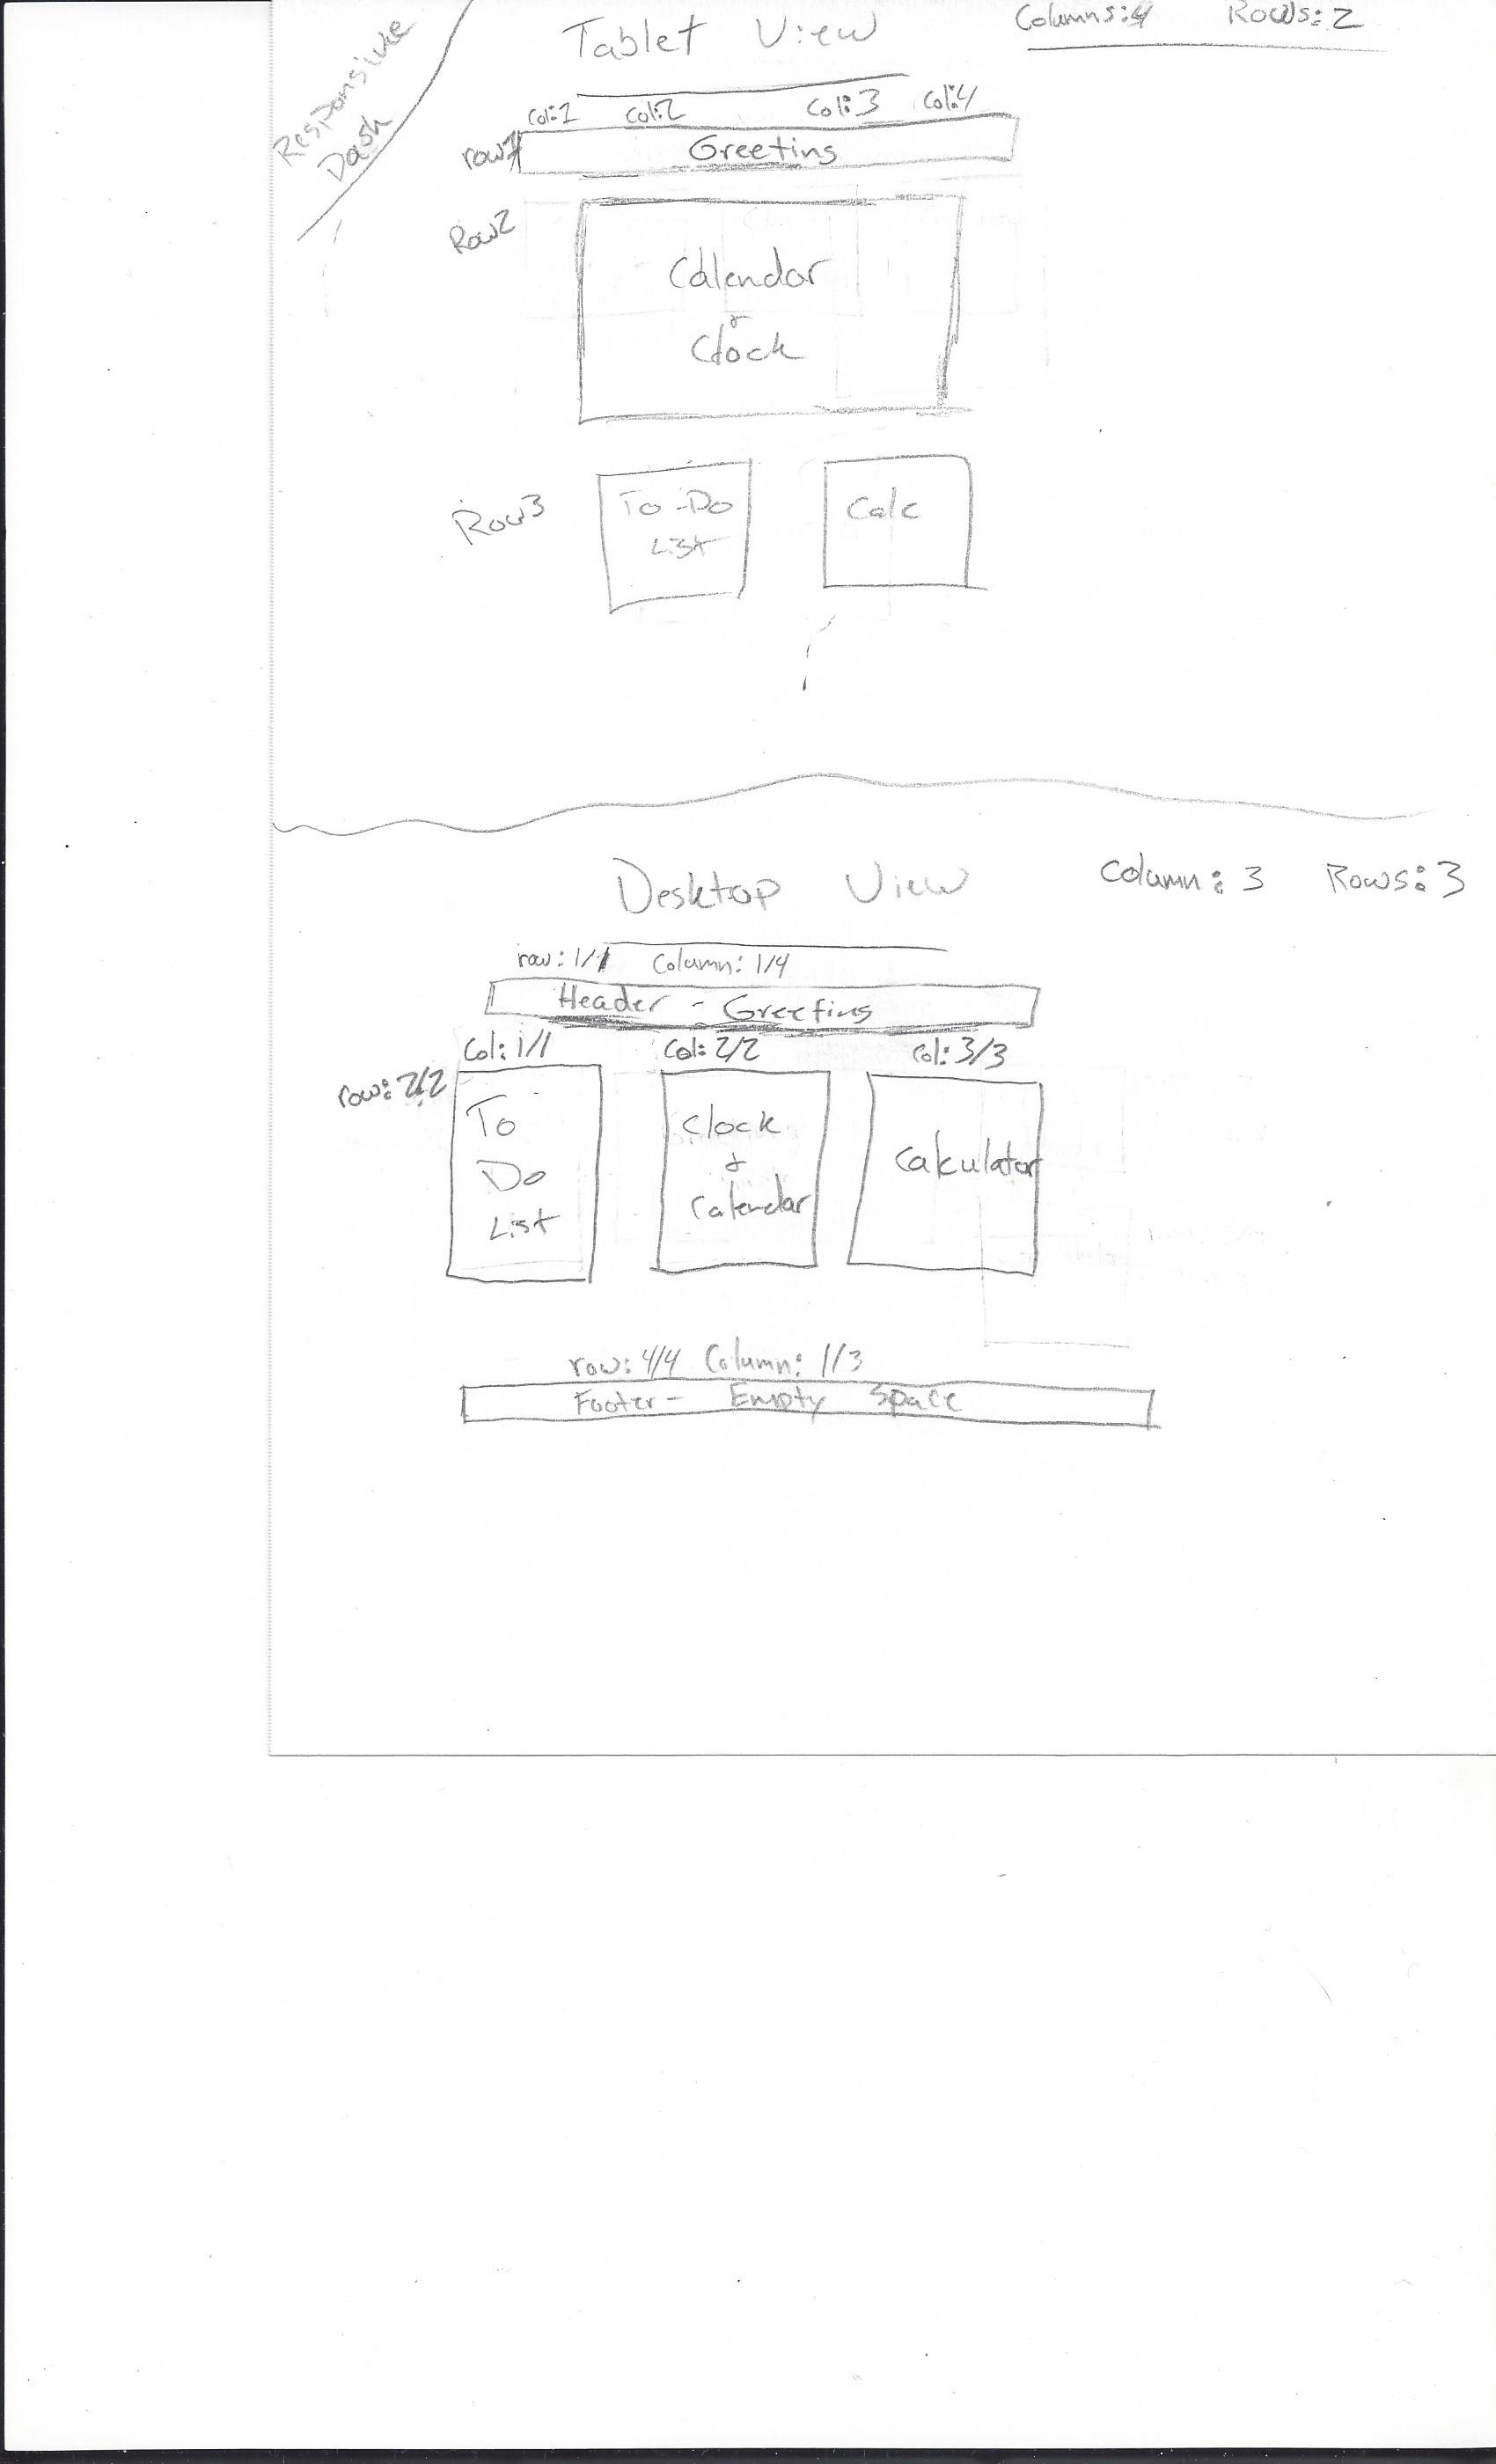 Responsive
Dash
Tablet View
Columns: 4 Rows: 2
Col:1 Col:2 Col:3 Col:4
row1 Greeting
Row2
Calendar
&
Clock
Row3
To-Do
List
Calc
Desktop View
Column: 3 Rows: 3
row: 1/1 Column: 1/4
Header - Greeting
Col: 1/1 Col: 2/2 Col: 3/3
row: 2/2
To
Do
List
Clock
&
Calendar
Calculator
row: 4/4 Column: 1/3
Footer - Empty Space